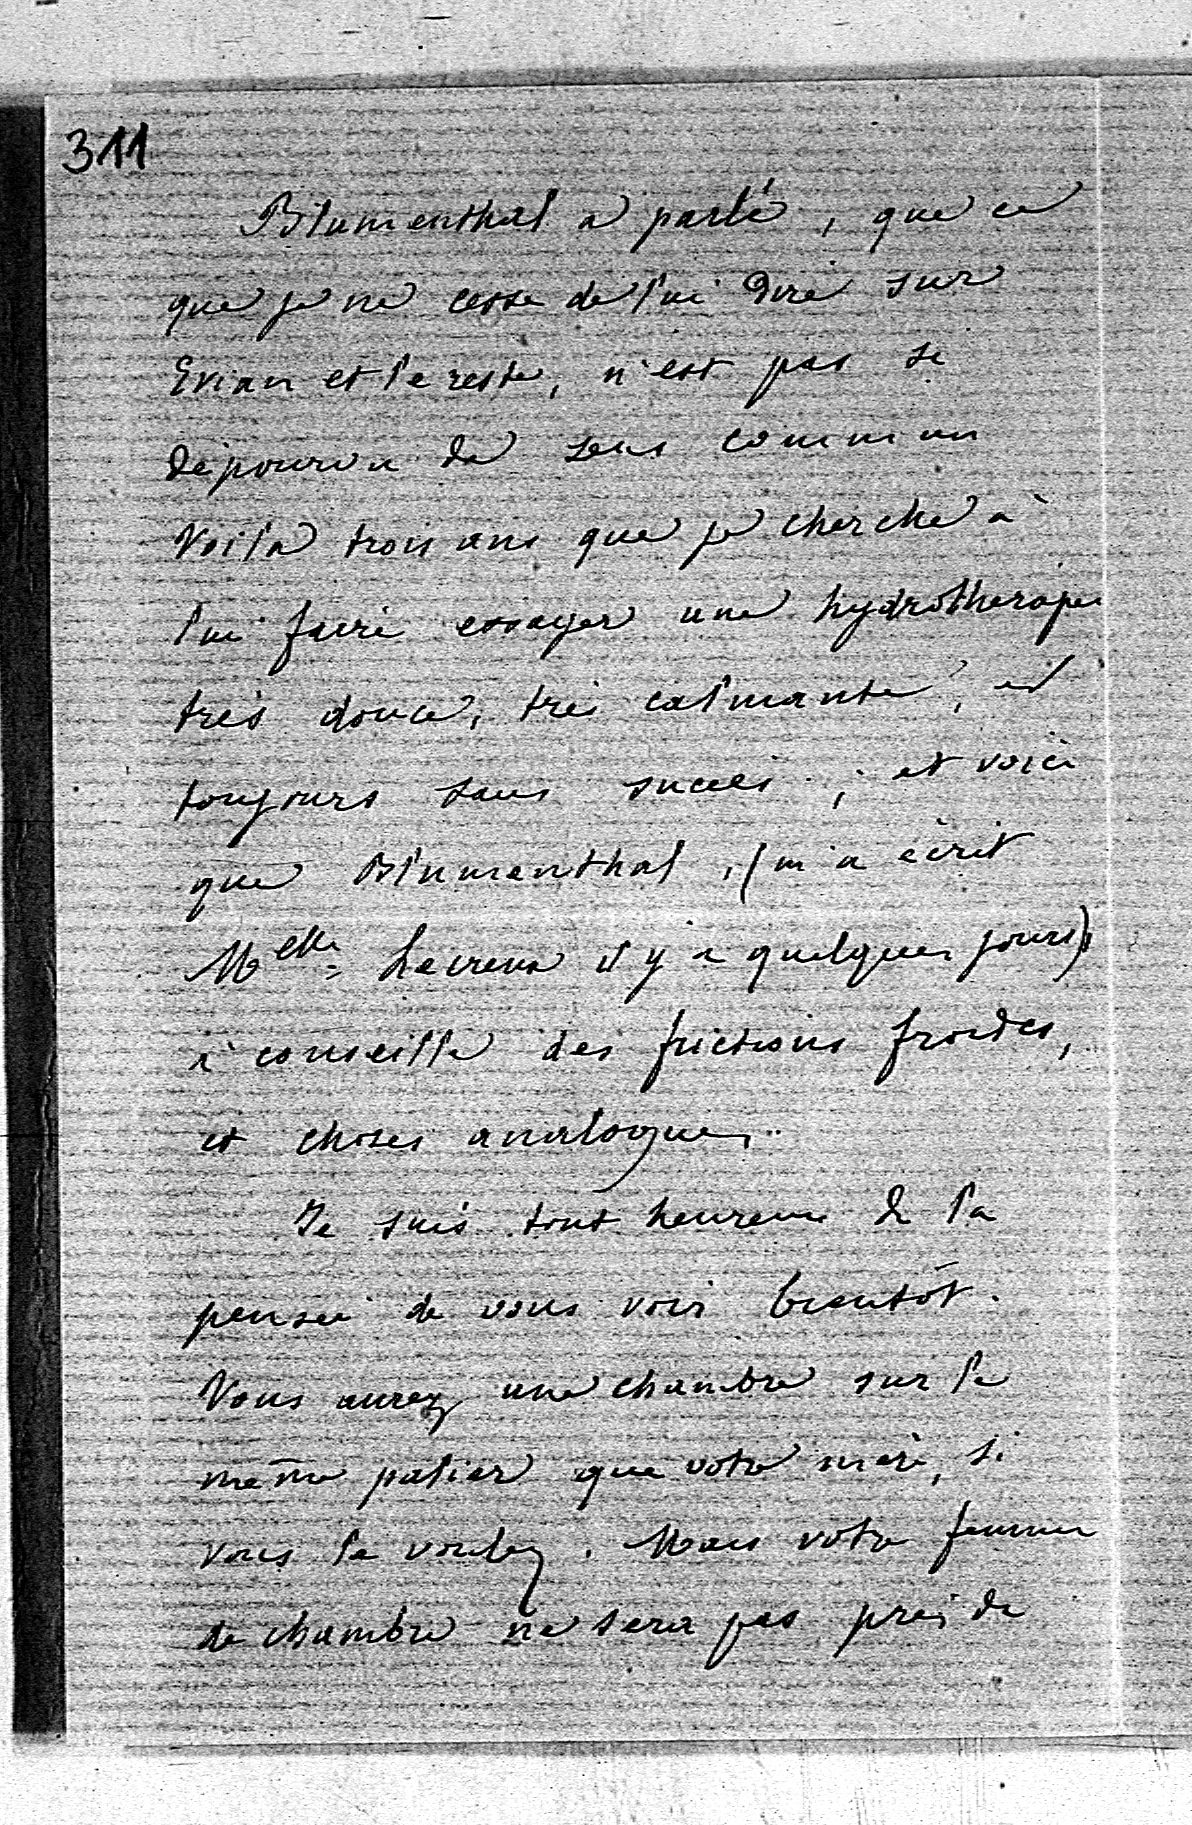 311
Blumenthal a parlé, que ce
que je ne cesse de lui dire sur
Evian et le reste, n'est pas si
dépourvu de sens commun
Voilà trois ans que je cherche à
lui faire essayer une hydrothérapie
très douce, très calmante, et
toujours sans succès ; et voici
que Blumenthal, (m'a écrit
Melle. il y a quelques jours)
a conseillé des frictions froides,
et choses analogues.
Je suis tout heureux de la
pensée de vous voir bientôt.
Vous aurez une chambre sur le
même palier que votre mère, si
vous le voulez. Mais votre femme
de chambre ne sera pas près de